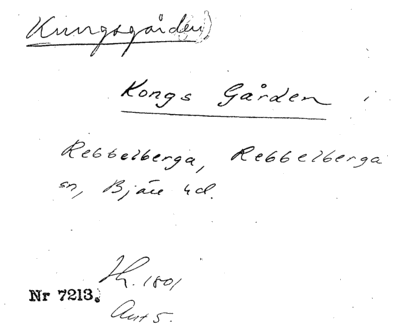 Kungsgården
Kongs Gården i
Rebbelberga, Rebbelberga
sn, Bjäre hd.
1801
Nr 7213.
Avt 5.